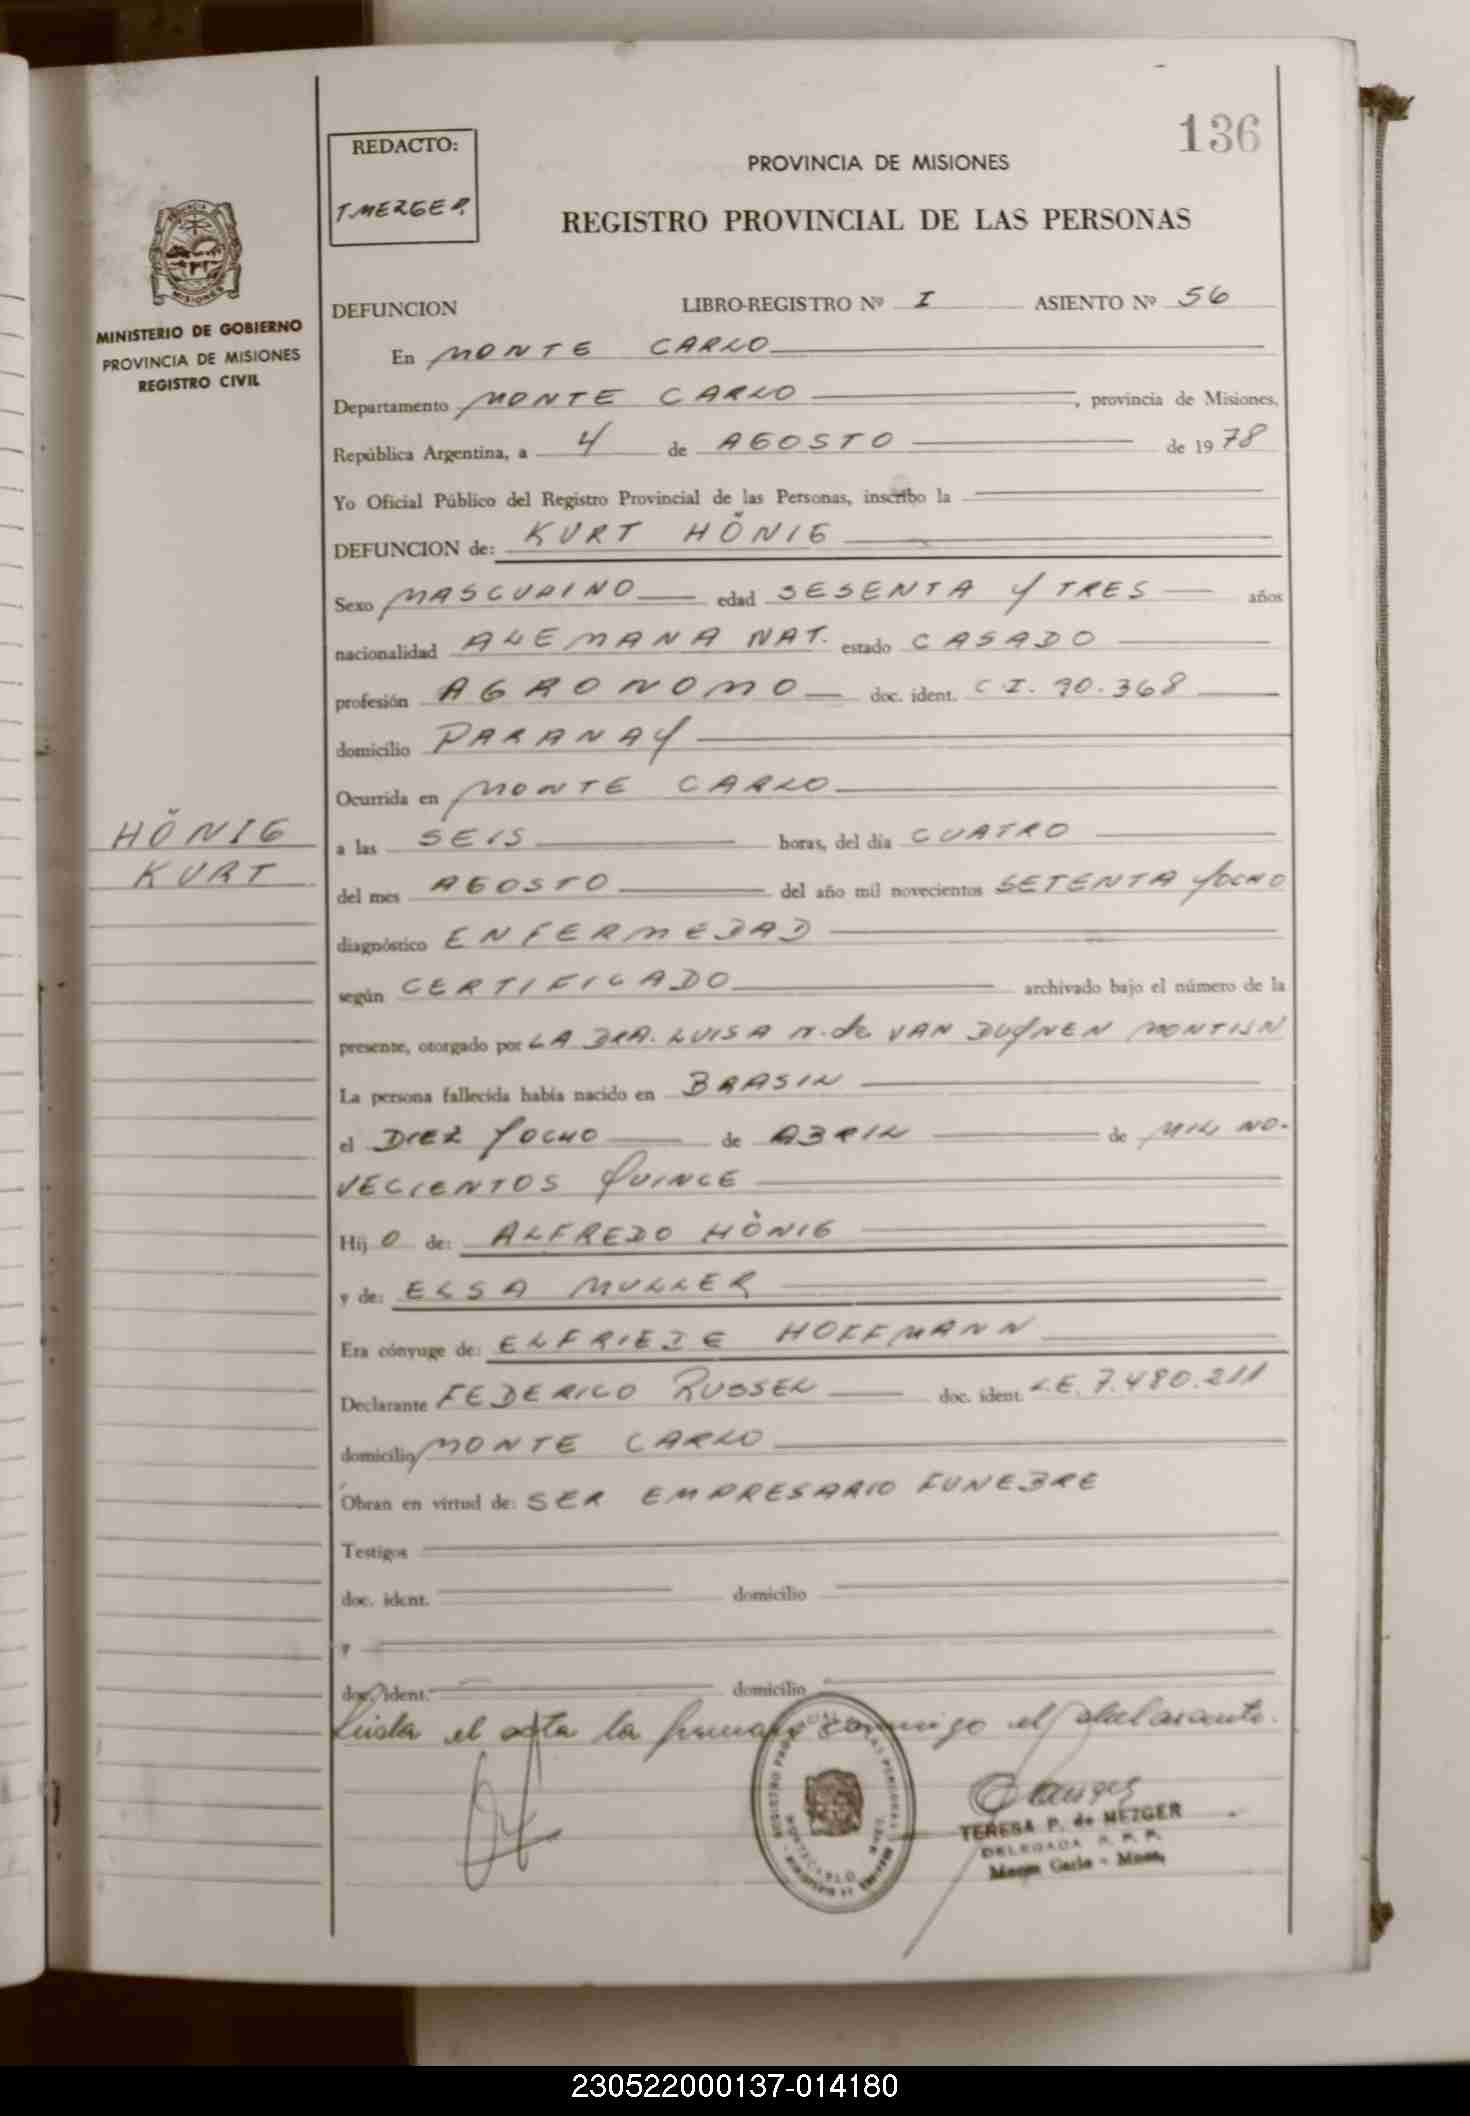 136
REDACTO:
T. MEZGER.
PROVINCIA DE MISIONES
REGISTRO PROVINCIAL DE LAS PERSONAS
MINISTERIO DE GOBIERNO
PROVINCIA DE MISIONES
REGISTRO CIVIL
DEFUNCION LIBRO-REGISTRO Nº I ASIENTO Nº 56
En MONTE CARLO
Departamento MONTE CARLO, provincia de Misiones,
República Argentina, a 4 de AGOSTO de 1978
Yo Oficial Público del Registro Provincial de las Personas, inscribo la
DEFUNCION de: KURT HÖNIG
Sexo MASCULINO edad SESENTA Y TRES años
nacionalidad ALEMANA NAT. estado CASADO
profesión AGRONOMO doc. ident. C I. 90.368
domicilio PARANAY
Ocurrida en MONTE CARLO
HÖNIG
KURT
a las SEIS horas, del día CUATRO
del mes AGOSTO del año mil novecientos SETENTA Y OCHO
diagnóstico ENFERMEDAD
según CERTIFICADO archivado bajo el número de la
presente, otorgado por LA DRA. LUISA de VAN DUYNEN
La persona fallecida había nacido en BRASIL
el DIEZ Y OCHO de ABRIL de MIL NO-
VECIENTOS QUINCE
Hij O de: ALFREDO HÖNIG
y de: ELSA MULLER
Era cónyuge de: ELFRIEDE HOFFMANN
Declarante FEDERICO RUSSEL doc. ident. L.E. 7.480.211
domicilio MONTE CARLO
Obran en virtud de: SER EMPRESARIO FUNEBRE
Testigos
doc. ident. domicilio
y
doc. ident. domicilio
Leida el acta la firman conmigo el declarante.
TERESA P. de MEZGER
DELEGADA R. P. P.
Monte Carlo - Mnes.
230522000137-014180